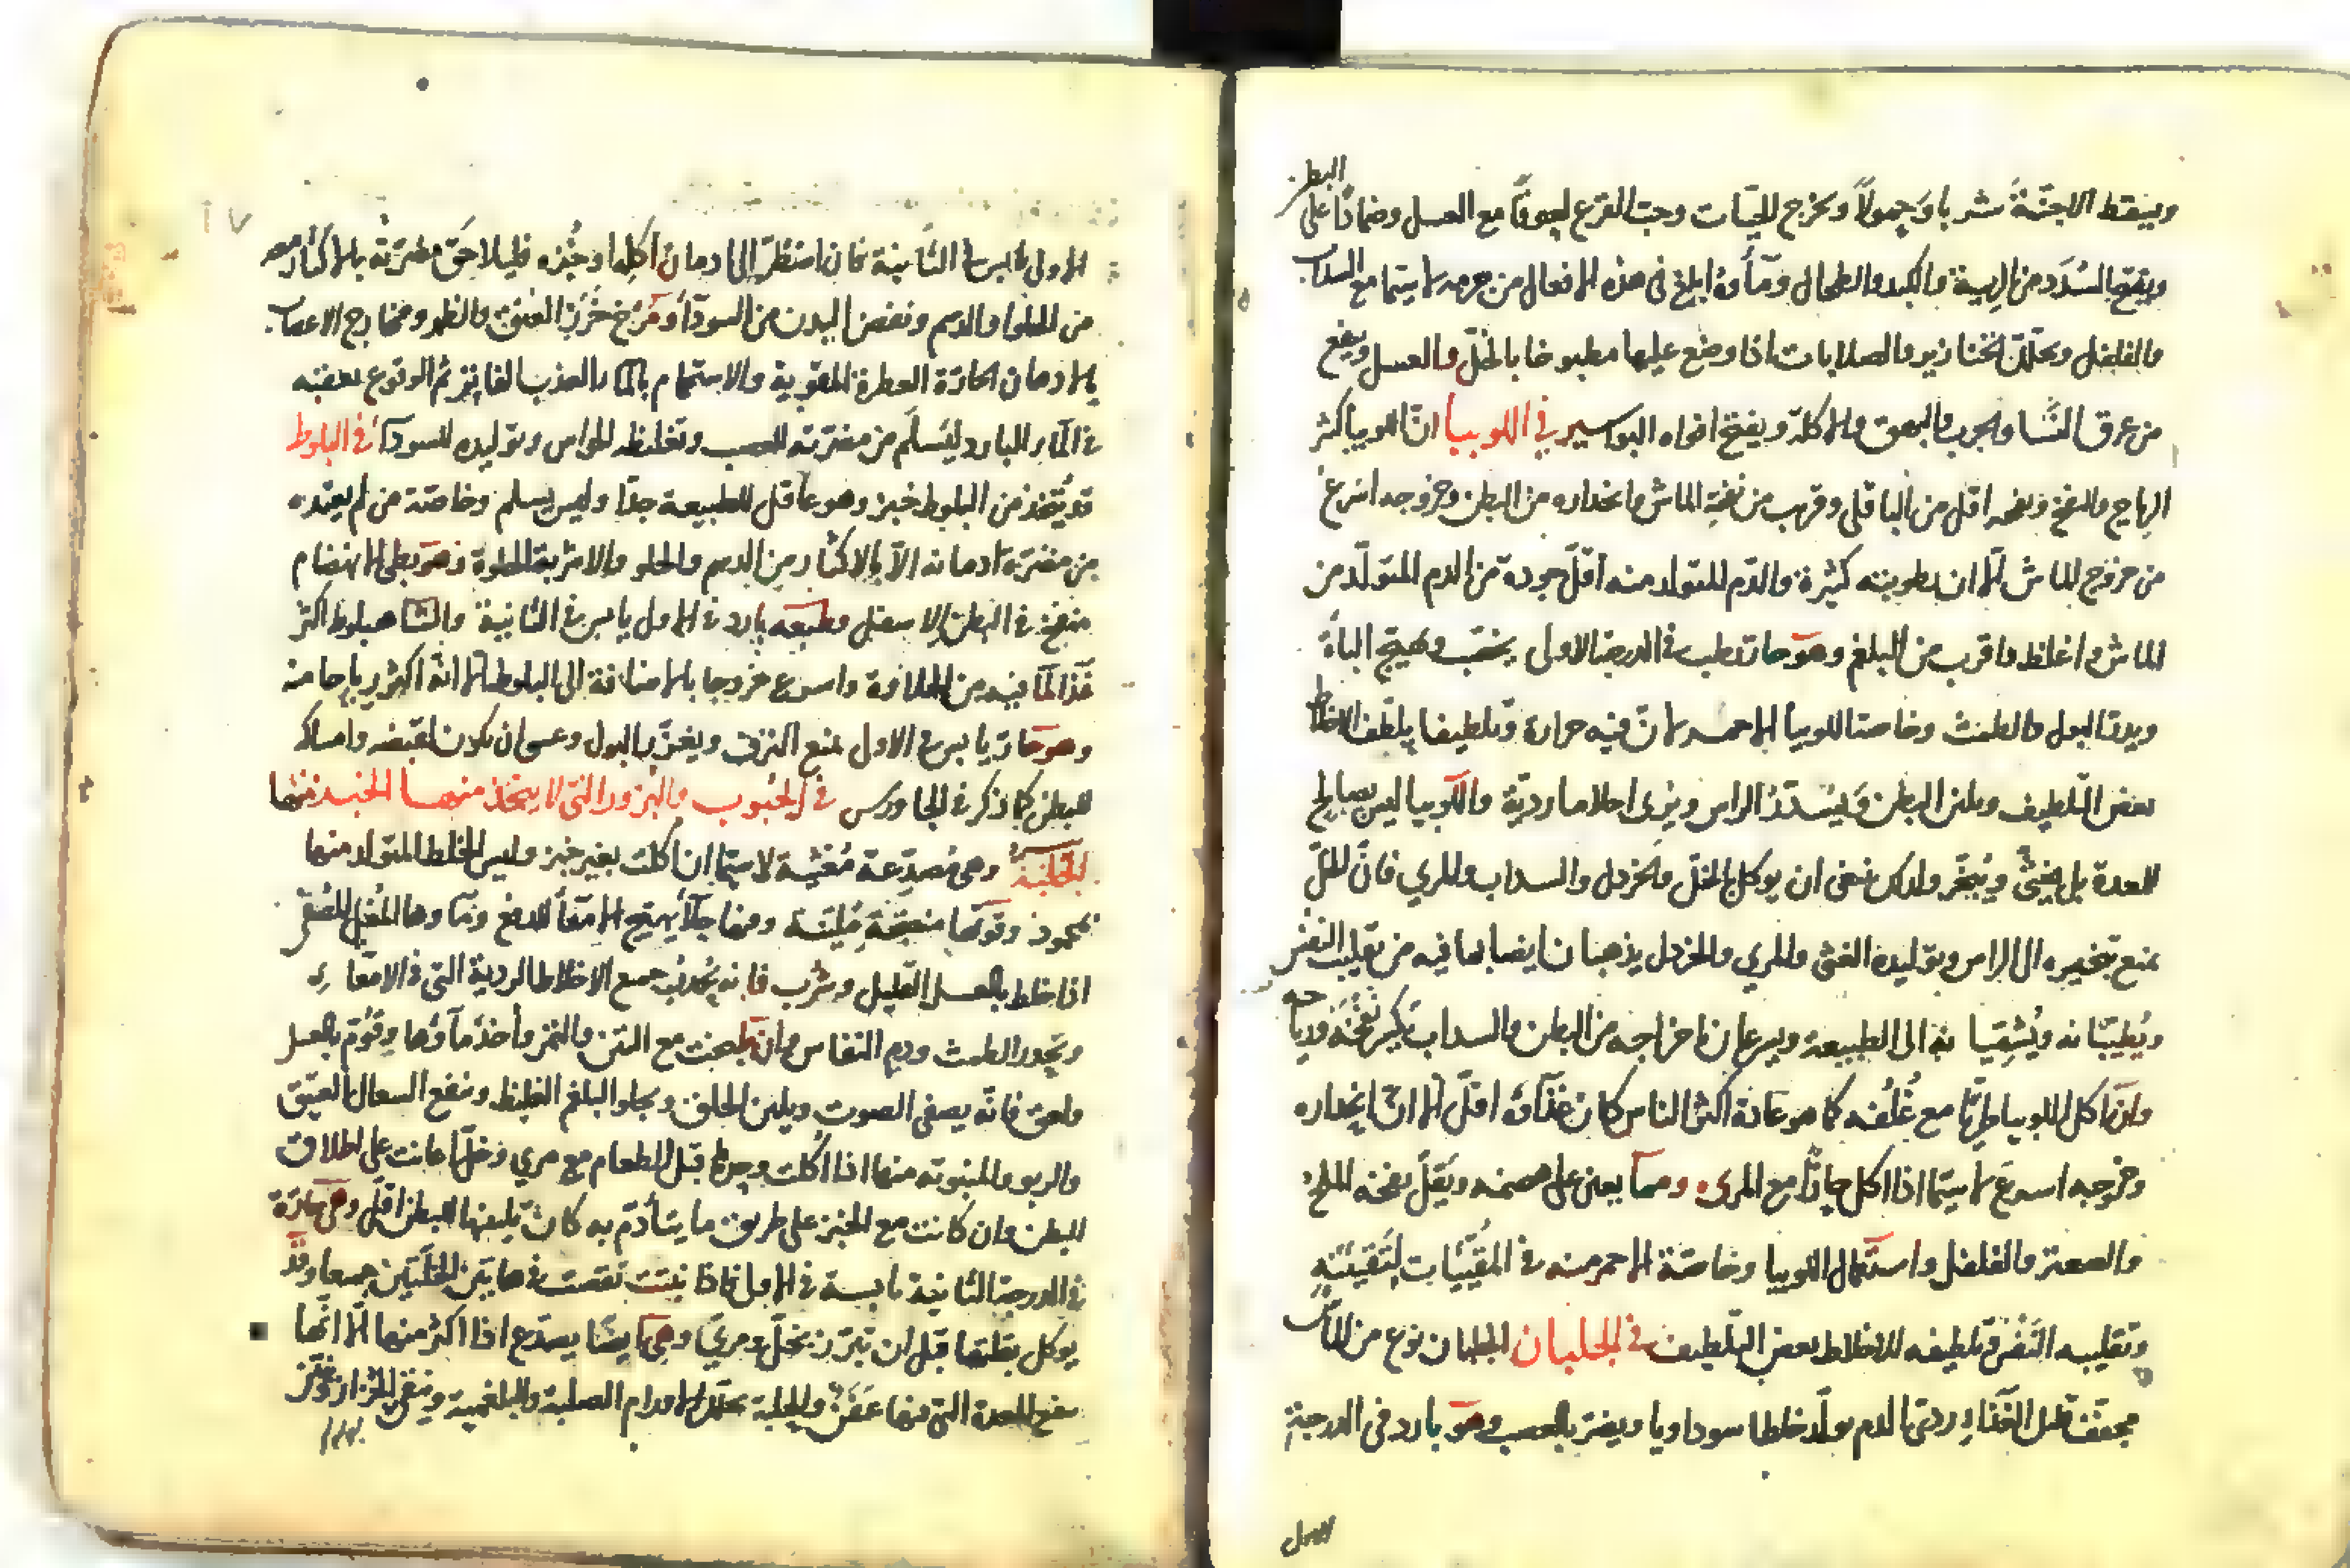 البطن
ويسقط الاجنّةَ شربا وَحمولاً ويخرج الحيّات وحبّ القرع لعوقًا مع العسل وضمادًا على
ويفتح السُدَد من الرية والكبد والطحال ومآؤهُ ابلغ فى هذه الافعال من جرمه لا سيّما مع السداب
والفلفل ويحلّل الخنازير والصلابات اذا وضع عليها مطبوخا بالخلّ والعسل وينفع
من عرق النَّسا والجرب والبهق والاكلة ويفتح افواه البواسير في اللوبيا انّ اللوبيا كثير
الرياح والنفخ ونفخه اقل من الباقلى وقريب من نفخة الماش وانحداره من البطن وخروجه اسرع
من خروج الماش الا ان رطوبته كثيرة والدّم المتولد منه اقلّ جودة من الدم المتولّد من
الماش واغلظ واقرب من البلغم وهو حار رطب في الدرجة الاولى يخصب ويهيّج الباة
ويدرّ البول والطمث وخاصة اللوبيا الاحمر لانّ فيه حرارة وتلطيفا يلطّف الاخلاط
بعض التلطيف ويلين البطن ويُسدّدُ الراس ويرى احلاما رديّة واللوبيا ليس بصالح
للمعدة بل يغثّى ويُبخّر ولذلك ينبغى ان يوكل بالخلّ والخردل والسداب والمري فانّ الخلّ
يمنع تبخيره الى الراس وتوليده الغثى والمري والخردل يذهبان ايضا بما فيه من تقليب النفس
ويُطيّبانه ويُشهّيانه الى الطبيعة ويسرعان اخراجه من البطن والسداب يكسر نفخَه ورياحه
واذا اكل اللوبيا طريّا مع غُلُفه كما هو عادة اكثر الناس كان غذآؤه اقلّ الا انّ انحداره
وخروجه اسرع لا سيّما اذا اكل حارًّا مع المرى ومما يعين على هضمه ويَقلّ نفخه الملح
والصعتر والفلفل واستعمال اللوبيا وخاصّة الاحمر منه في المقيّئات لتَقيئَتِهِ
وتقليبه النَفْس وتلطيفه للاخلاط بعض التلطيف في الجلبان الجلبان نوع من الماش
مجفّف قليل الغذاء ردىّ الدم يولّد خلطا سوداويا ويضرّ بالعصب وهو بارد فى الدرجة
الاولى
الاولى يابس في الثّانية فان اضطرّ الى ادمان اكله او خُبْزه فليلاحق مضرّته بالاكثار معه
من الحلوا والدسم ونفض البدن من السودآ ومَرْخ خَرَز العنق والظهر ومخارج الاعصاب
بالادهان الحارّة العطرة المقوية والاستحمام بالماء العذب الفاتر ثم الوقوع بعقبه
في المآء البارد ليَسلَم من مضرّته للعصب وتغليظه للحواس وتوليده للسودآء في البلوط
قد يُتّخذ من البلوط خبز وهو عاقل للطبيعة جدّا وليس يسلم وخاصّة من لم يعتده
من مضرّة ادمانه الاّ بالاكثار من الدسم والحلو والاشربة الحلوة وهو بطى الانهضام
منفخ في البطن الاسفل وطبعه بارد في الاول يابس في الثانية والشاهبلوط اكثر
غذآءً لما فيه من الحلاوة واسرع خروجا بالاضافة الى البلوط الا انّه اكثر رياحا منه
وهو حارّ يابس في الاول يمنع النزف ويغزّر البول وعسى ان يكون لقبضه وامساكه
للبطن كما ذكر في الجاورس في الحُبوب والبزور التى لا يتخذ منها الخبز فمنها
الحُلبَة وهى مُصدِّعة مُغثية لا سيّما ان اكلت بغير خبز وليس الخلط المتولد منها
بمحمود وقوّتها منضجة مُليّنة وفيها جلآءٌ يهيّج الامعآء للدفع ومآوها المُغلى المُصفّى
اذا خلط بالعسل القليل وشرب فانه يُحدرُ جميع الاخلاط الردية التى فى الامعاء
ويحدر الطمث ودم النفاس وان طبخت مع التين والتمر وأُخذ مآؤها وقُوّم بالعسل
ولعق فانّه يصفى الصوت ويلين الحلق ويجلو البلغم الغليظ وينفع السعال العتيق
والربو والمنبوتة منها اذا اُكلت وحدها قبل الطعام مع مري وخلّ اعانت على اطلاق
البطن وان كانت مع الخبز على طريق ما يتأدّم به كان تليينها للبطن اقلّ وهى حارّة
في الدرجة الثانية يابسة في الاولى فاذا نبتت نقصت في هاتين الخلّتين جميعا وقد
يوكل بقلتها قبل ان تبزر بخلّ ومريّ وهى ايضًا يصدّع اذا اكثر منها الا انّها
ينفع المعدة التى فيها عَفَنٌ والحلبة تحلّل الاورام الصلبة والبلغمية وينقى الحزاز